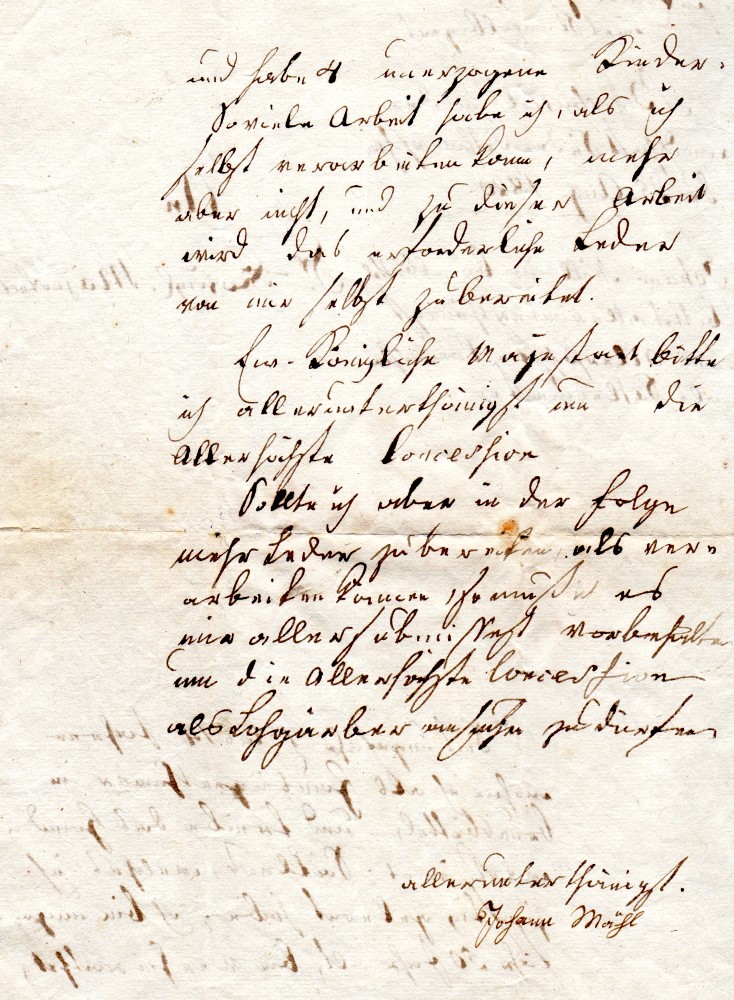 und habe 4 unerzogene Kinder.
Soviele Arbeit habe ich, als ich
selbst verarbeiten kann, mehr
aber nicht, und zu dieser Arbeit
wird das erforderliche Leder
von mir selbst zubereitet.
Ew. Königliche Majestaet bitte
ich allerunterthänigst um die
Allerhöchste Concession
Sollte ich aber in der Folge
mehr Leder zubereiten, als ver=
arbeiten können, so muß es
mir allersubmissest vorbehalten
um die Allerhöchste Concession
als Lohgärber ansuchen zu dürfen
allerunterthänigst.
Johann Mähl